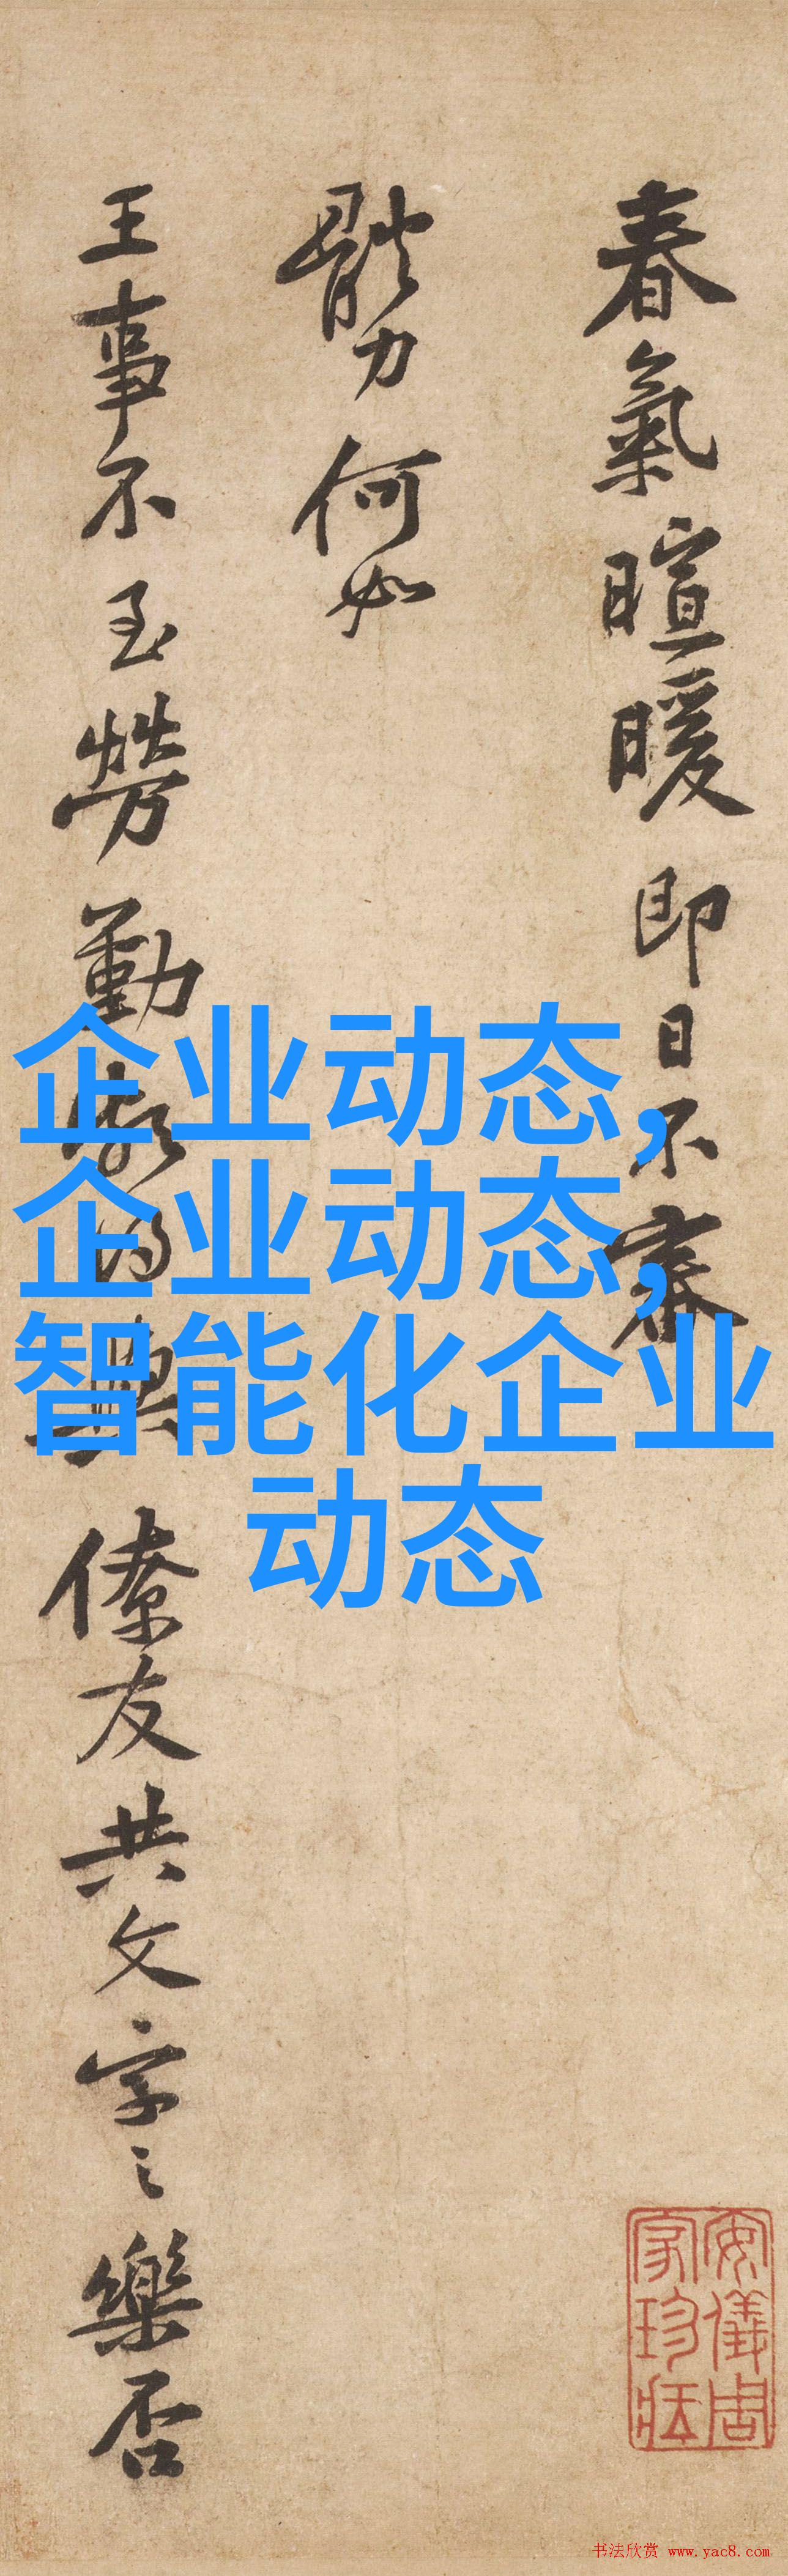 春氣暄暖即日不審
體力何如
王事不至勞勤
僚友共文字之樂否
企业动态,
企业动态,
智能化企业
动态
安儀周
家珍藏
书法欣赏 www.yac8.com